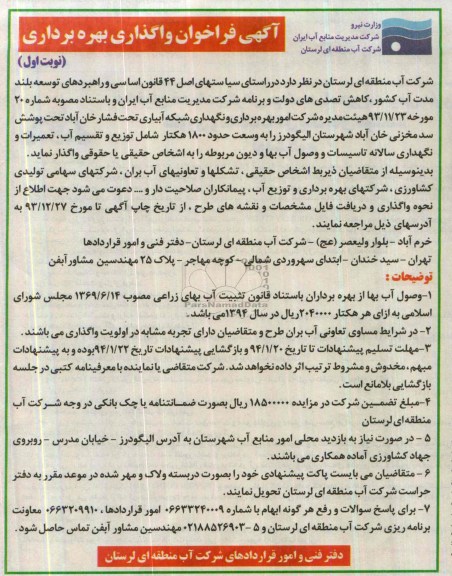 وزارت نیرو
شرکت مدیریت منابع آب ایران
شرکت آب منطقه ای لرستان
آگهی فراخوان واگذاری بهره برداری
(نوبت اول)
شرکت آب منطقه ای لرستان در نظر دارد در راستای سیاستهای اصل ۴۴ قانون اساسی و راهبردهای توسعه بلند
مدت آب کشور، کاهش تصدی های دولت و برنامه شرکت مدیریت منابع آب ایران و باستناد مصوبه شماره ۲۰
مورخه ۹۳/۱۱/۲۳ هیئت مدیره شرکت امور بهره برداری و نگهداری شبکه آبیاری تحت فشار خان آباد تحت پوشش
سد مخزنی خان آباد شهرستان الیگودرز را به وسعت حدود ۱۸۰۰ هکتار شامل توزیع و تقسیم آب، تعمیرات و
نگهداری سالانه تاسیسات و وصول آب بها و دیون مربوطه را به اشخاص حقیقی یا حقوقی واگذار نماید.
بدینوسیله از متقاضیان ذیربط اشخاص حقیقی، تشکلها و تعاونیهای آب بران، شرکتهای سهامی تولیدی
کشاورزی، شرکتهای بهره برداری و توزیع آب، پیمانکاران صلاحیت دار و .... دعوت می شود جهت اطلاع از
نحوه واگذاری و دریافت فایل مشخصات و نقشه های طرح، از تاریخ چاپ آگهی تا مورخ ۹۳/۱۲/۲۷ به
آدرسهای ذیل مراجعه نمایند.
خرم آباد - بلوار ولیعصر (عج) - شرکت آب منطقه ای لرستان - دفتر فنی و امور قراردادها
تهران - سید خندان - ابتدای سهروردی شمالی - کوچه مهاجر - پلاک ۲۵ مهندسین مشاور آبفن
توضیحات :
۱- وصول آب بها از بهره برداران باستناد قانون تثبیت آب بهای زراعی مصوب ۱۳۶۹/۶/۱۴ مجلس شورای
اسلامی به ازای هر هکتار ۲۰۴۰۰۰۰ ریال در سال ۱۳۹۴ می باشد.
۲- در شرایط مساوی تعاونی آب بران طرح و متقاضیان دارای تجربه مشابه در اولویت واگذاری می باشند.
۳- مهلت تسلیم پیشنهادات تا تاریخ ۹۴/۱/۲۰ و بازگشایی پیشنهادات تاریخ ۹۴/۱/۲۲ بوده و به پیشنهادات
مبهم، مخدوش و مشروط ترتیب اثر داده نخواهد شد. شرکت متقاضی یا نماینده با معرفینامه کتبی در جلسه
بازگشایی بلامانع است.
۴- مبلغ تضمین شرکت در مزایده ۱۸۵۰۰۰۰۰ ریال بصورت ضمانتنامه یا چک بانکی در وجه شرکت آب
منطقه ای لرستان
۵ - در صورت نیاز به بازدید محلی امور منابع آب شهرستان به آدرس الیگودرز - خیابان مدرس - روبروی
جهاد کشاورزی آماده همکاری می باشند.
۶ - متقاضیان می بایست پاکت پیشنهادی خود را بصورت دربسته ولاک و مهر شده در موعد مقرر به دفتر
حراست شرکت آب منطقه ای لرستان تحویل نمایند.
۷- برای پاسخ سوالات و رفع هر گونه ابهام با شماره ۰۶۶۳۳۲۴۰۰۰۹ امور قراردادها، ۰۶۶۳۲۰۹۹۱۰ معاونت
برنامه ریزی شرکت آب منطقه ای لرستان و ۵ -۰۲۱۸۸۵۲۶۹۰۳ مهندسین مشاور آبفن تماس حاصل شود.
دفتر فنی و امور قراردادهای شرکت آب منطقه ای لرستان